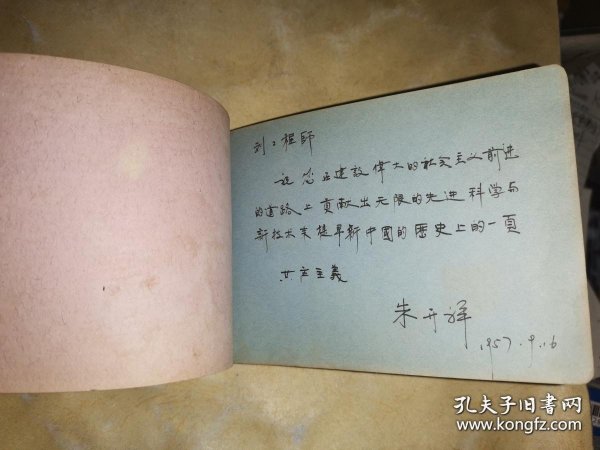 刘工程師
祝您在建設偉大的社会主义前进
的道路上貢献出无限的先进科学与
新技术来提早新中國的歷史上的一頁
共产主義
朱开祥
1957.9.16
孔夫子旧書网
www.kongfz.com